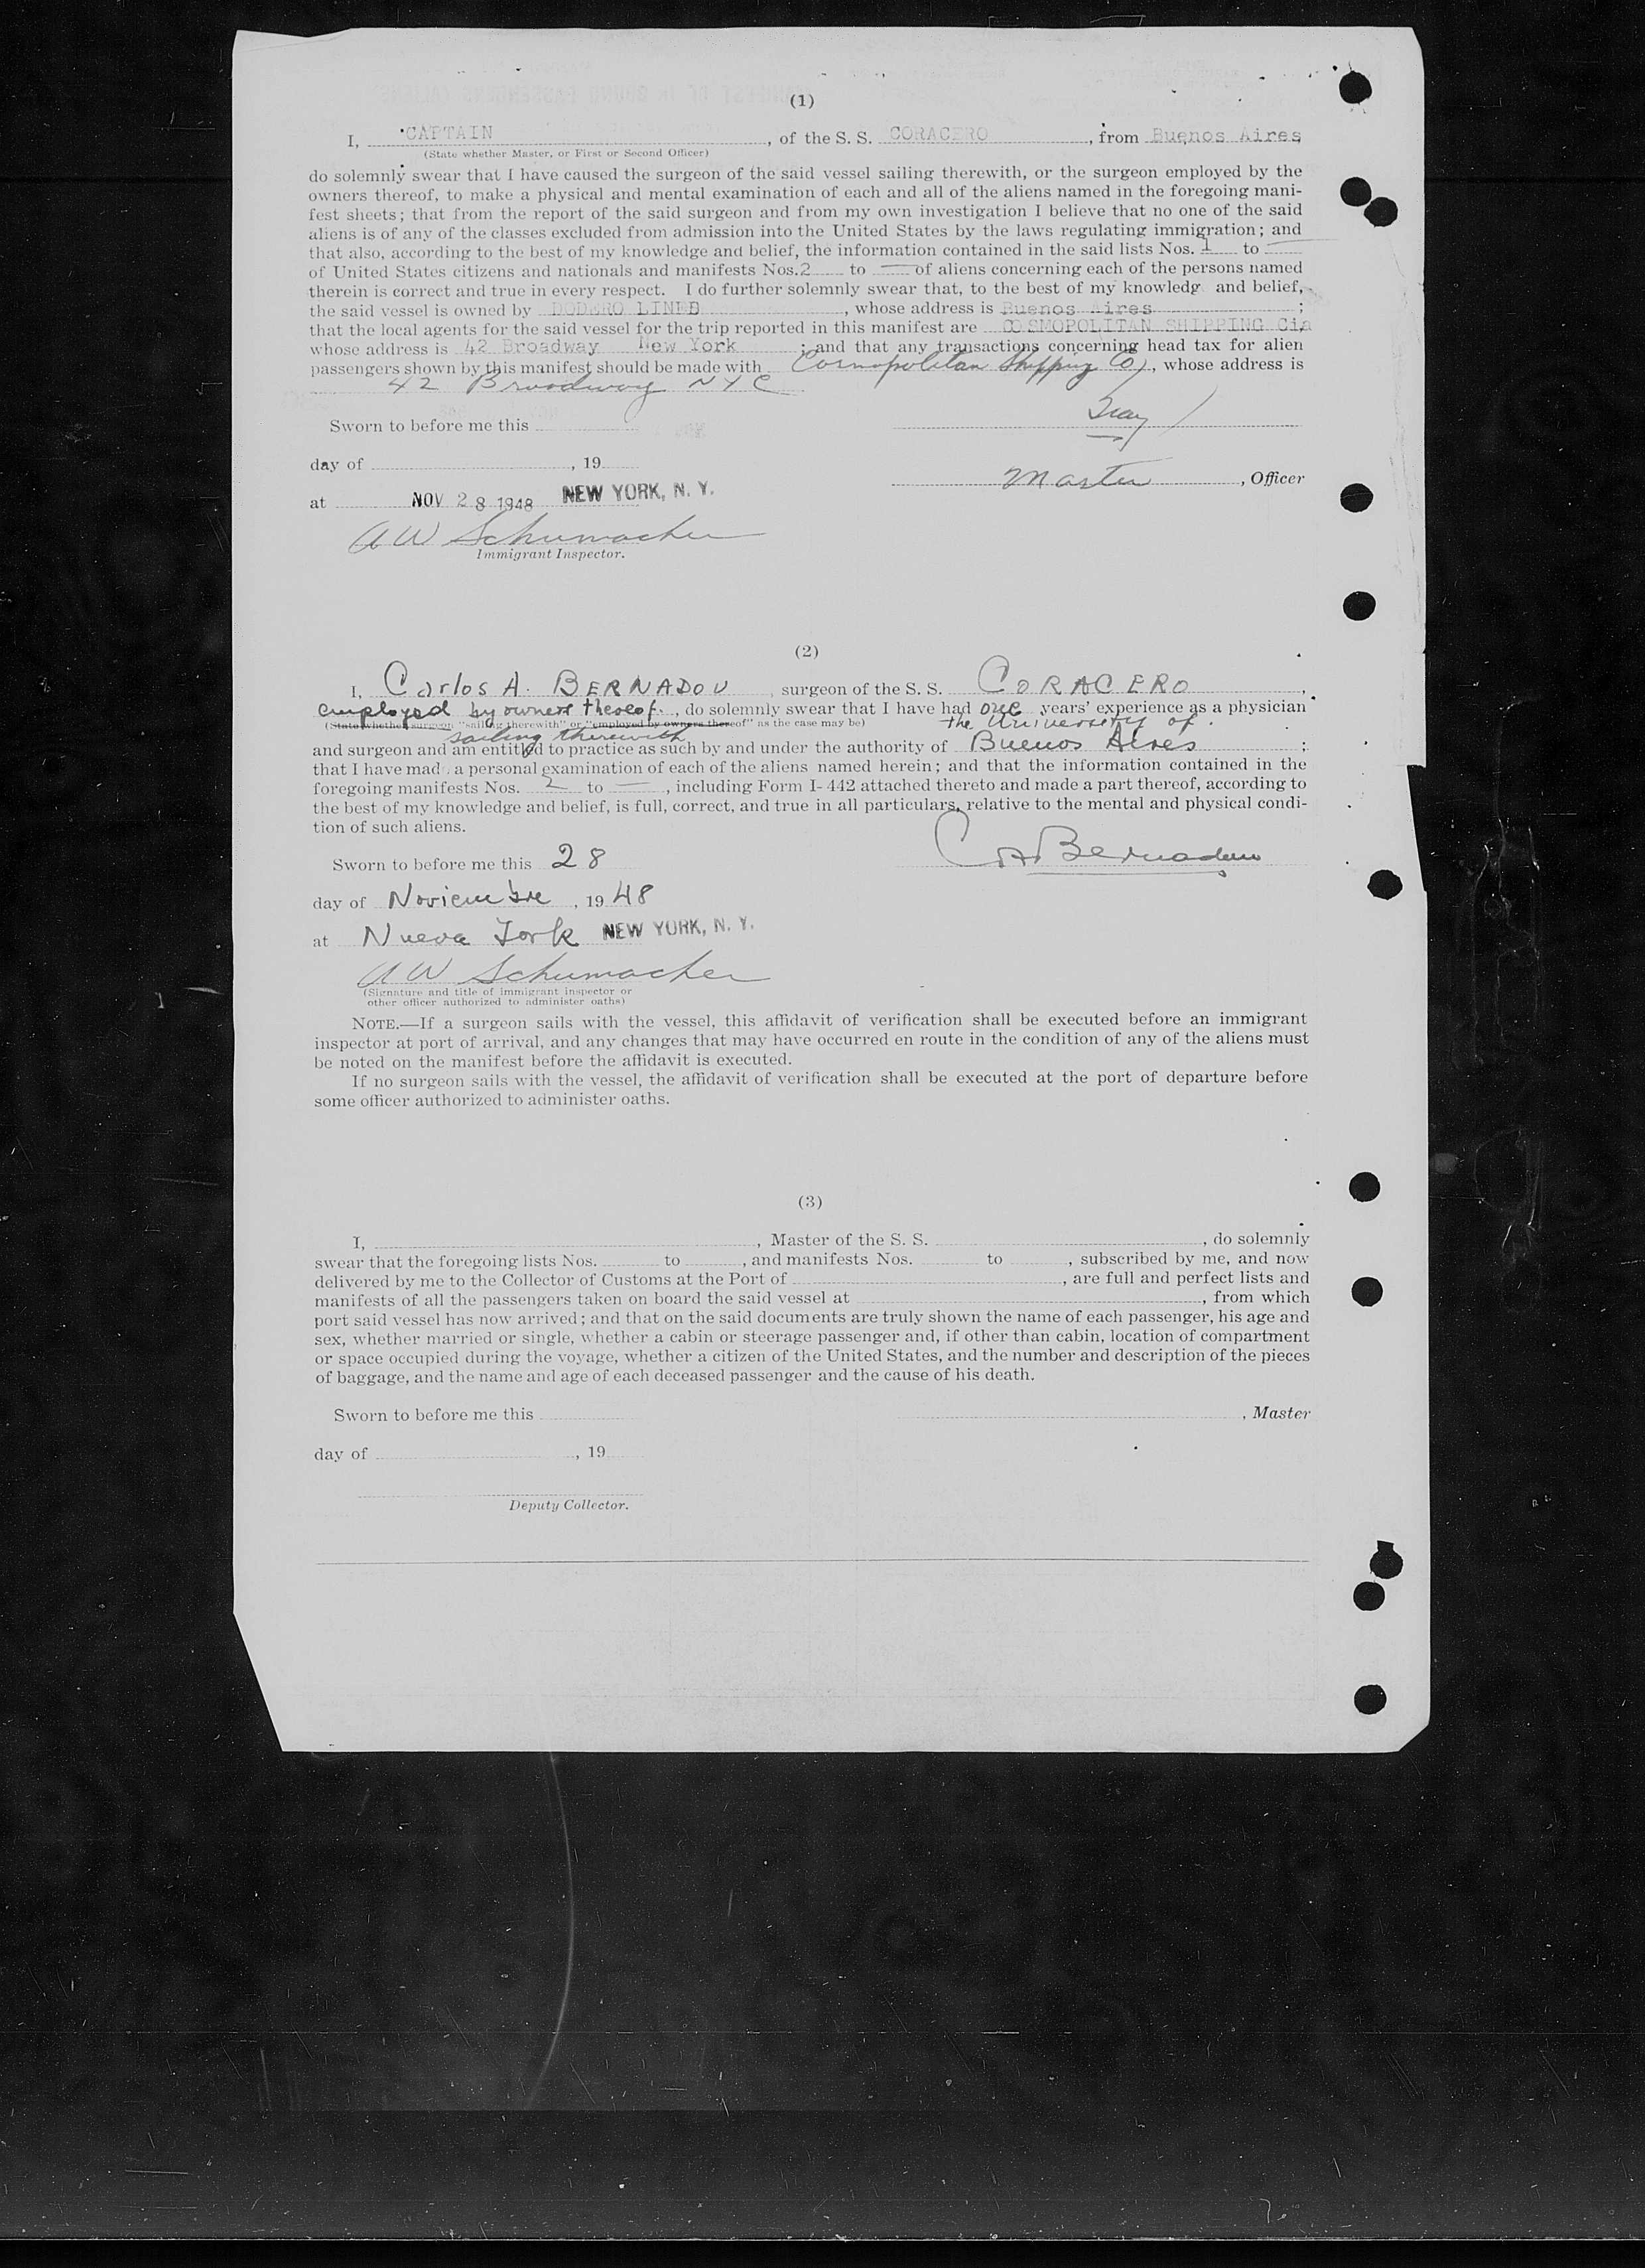 (1)
I, CAPTAIN, of the S. S. CORACERO, from Buenos Aires
(State whether Master, or First or Second Officer)
do solemnly swear that I have caused the surgeon of the said vessel sailing therewith, or the surgeon employed by the
owners thereof, to make a physical and mental examination of each and all of the aliens named in the foregoing mani-
fest sheets; that from the report of the said surgeon and from my own investigation I believe that no one of the said
aliens is of any of the classes excluded from admission into the United States by the laws regulating immigration; and
that also, according to the best of my knowledge and belief, the information contained in the said lists Nos. 1 to —
of United States citizens and nationals and manifests Nos. 2 to — of aliens concerning each of the persons named
therein is correct and true in every respect. I do further solemnly swear that, to the best of my knowledg and belief,
the said vessel is owned by DODERO LINES, whose address is Buenos Aires;
that the local agents for the said vessel for the trip reported in this manifest are COSMOPOLITAN SHIPPING Cia
whose address is 42 Broadway New York; and that any transactions concerning head tax for alien
passengers shown by this manifest should be made with Cosmopolitan Shipping Co, whose address is
42 Broadway NYC
Sworn to before me this
day of , 19
Master, Officer
at NOV 28 1948 NEW YORK, N. Y.
A W Schumacher
Immigrant Inspector.
(2)
I, Carlos A. BERNADOU, surgeon of the S. S. CORACERO,
employed by owners thereof, do solemnly swear that I have had one years' experience as a physician
(State whether surgeon "sailing therewith" or "employed by owners thereof" as the case may be) the University of
sailing therewith
and surgeon and am entitled to practice as such by and under the authority of Buenos Aires;
that I have mad a personal examination of each of the aliens named herein; and that the information contained in the
foregoing manifests Nos. 2 to —, including Form I-442 attached thereto and made a part thereof, according to
the best of my knowledge and belief, is full, correct, and true in all particulars, relative to the mental and physical condi-
tion of such aliens.
Sworn to before me this 28
C A Bernadou
day of Noviembre, 1948
at Nueva York NEW YORK, N. Y.
A W Schumacher
(Signature and title of immigrant inspector or
other officer authorized to administer oaths)
NOTE.—If a surgeon sails with the vessel, this affidavit of verification shall be executed before an immigrant
inspector at port of arrival, and any changes that may have occurred en route in the condition of any of the aliens must
be noted on the manifest before the affidavit is executed.
If no surgeon sails with the vessel, the affidavit of verification shall be executed at the port of departure before
some officer authorized to administer oaths.
(3)
I, , Master of the S. S. , do solemnly
swear that the foregoing lists Nos. to , and manifests Nos. to , subscribed by me, and now
delivered by me to the Collector of Customs at the Port of , are full and perfect lists and
manifests of all the passengers taken on board the said vessel at , from which
port said vessel has now arrived; and that on the said documents are truly shown the name of each passenger, his age and
sex, whether married or single, whether a cabin or steerage passenger and, if other than cabin, location of compartment
or space occupied during the voyage, whether a citizen of the United States, and the number and description of the pieces
of baggage, and the name and age of each deceased passenger and the cause of his death.
Sworn to before me this
, Master
day of , 19
Deputy Collector.